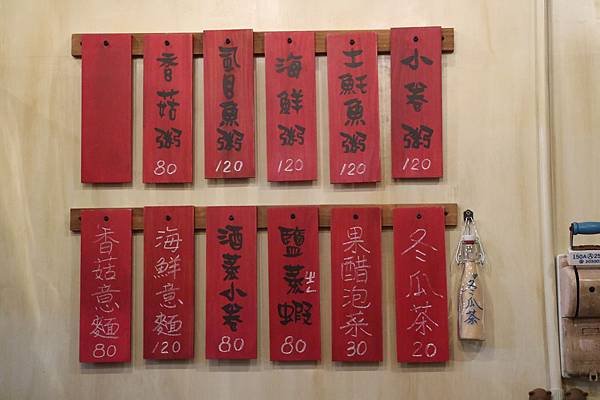 香菇粥
80
虱目魚粥
120
海鮮粥
120
土魠魚粥
120
小卷粥
120
香菇意麵
80
海鮮意麵
120
酒蒸小卷
80
鹽蒸蝦
80
果醋泡菜
30
冬瓜茶
20
冬瓜茶